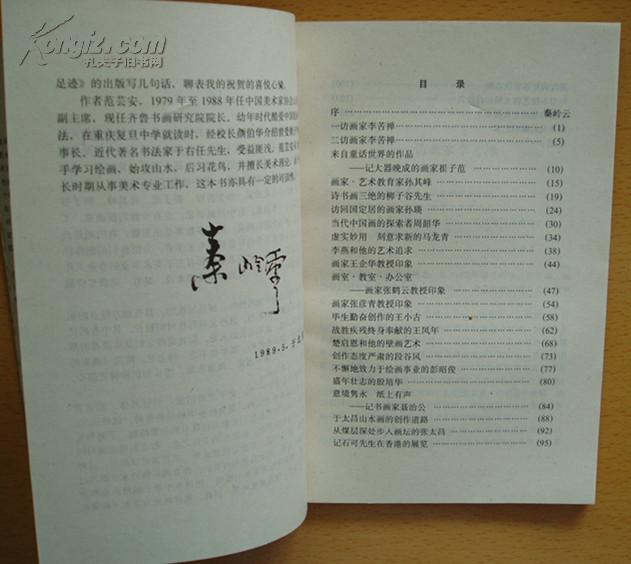 Kongfz.com
孔夫子旧书网
足迹》的出版写几句话，聊表我的祝贺的喜悦心愫。
作者范芸安，1979 年至 1988 年任中国美术家协会山
副主席，现任齐鲁书画研究院院长。幼年时代酷爱中国
法，在重庆复旦中学就读时，经校长颜伯华介绍
事长、近代著名书法家于右任先生，受益匪浅。范芸安
手学习绘画，始攻山水，后习花鸟，并擅长美术理论，
长时期从事美术专业工作，这本书亦具有一定的可读性。
秦岭云
1989·5·于
目 录
序 ………… 秦岭云
一访画家李苦禅 ………… (1)
二访画家李苦禅 ………… (5)
来自童话世界的作品
——记大器晚成的画家崔子范 ………… (10)
画家·艺术教育家孙其峰 ………… (15)
诗书画三绝的柳子谷先生 ………… (19)
访回国定居的画家孙瑛 ………… (24)
当代中国画的探索者周韶华 ………… (30)
虚实妙用 刻意求新的马龙青 ………… (34)
李燕和他的艺术追求 ………… (38)
画家王企华教授印象 ………… (44)
画室·教室·办公室
——画家张鹤云教授印象 ………… (47)
画家张彦青教授印象 ………… (54)
毕生勤奋创作的王小古 ………… (58)
战胜疾残终身奉献的王凤年 ………… (62)
楚启恩和他的壁画艺术 ………… (68)
创作态度严肃的段谷风 ………… (73)
不懈地致力于绘画事业的彭昭俊 ………… (77)
盛年壮志的殷培华 ………… (80)
意境隽永 纸上有声
——记书画家聂治公 ………… (84)
于太昌山水画的创作道路 ………… (88)
从煤层深处步入画坛的张太昌 ………… (92)
记石可先生在香港的展览 ………… (95)